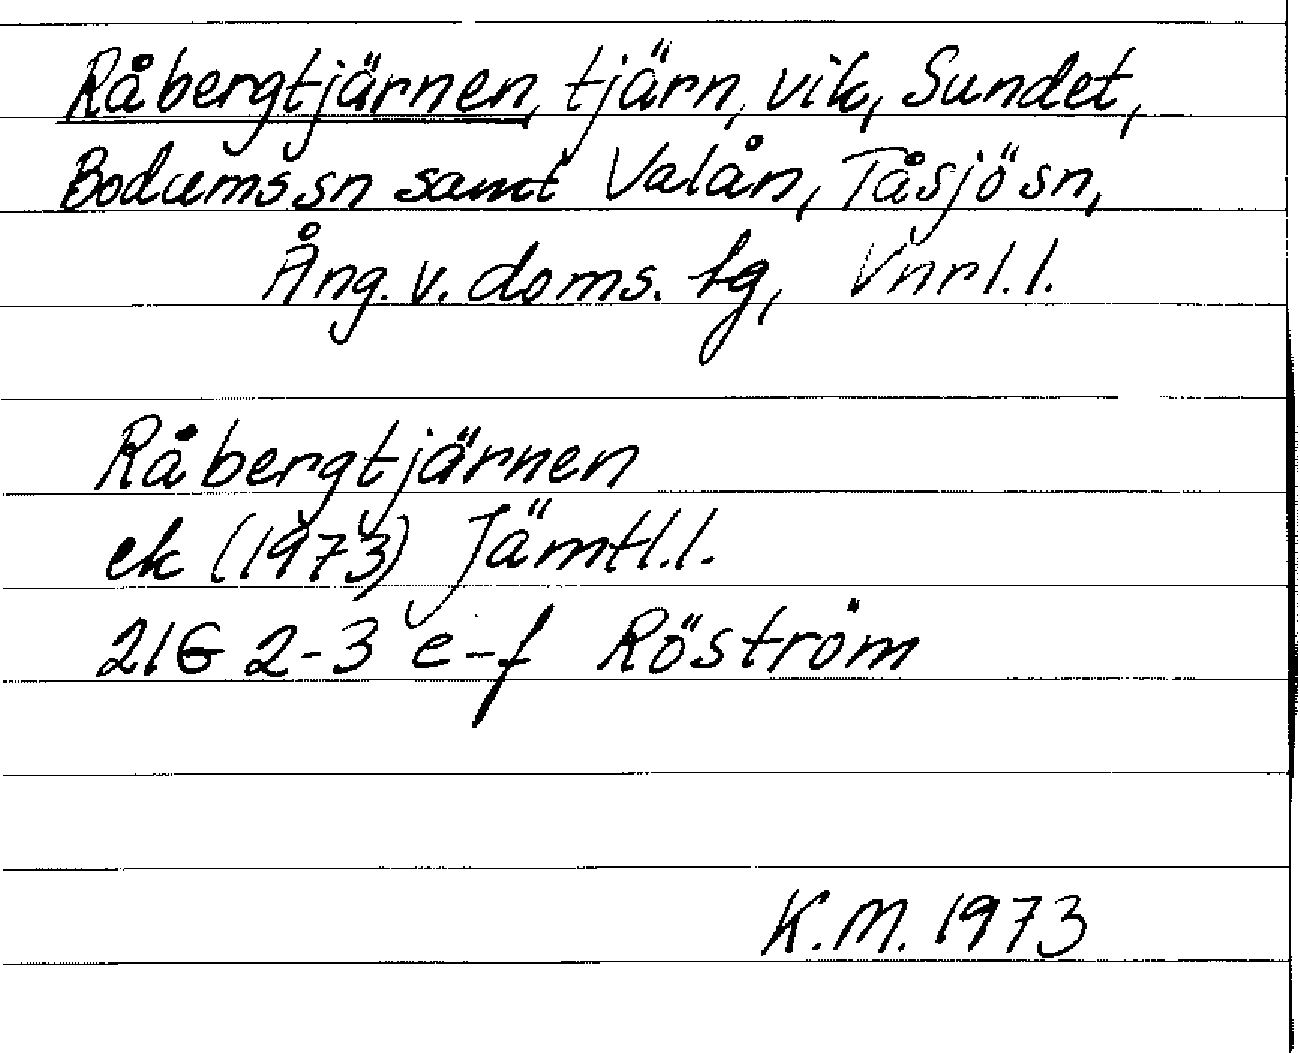 Råbergtjärnen, tjärn, vik, Sundet,
Bodums sn samt Valån, Tåsjö sn,
Ång. v. doms. tg, Vnrl. l.
Råbergtjärnen
ek (1973) Jämtl. l.
21G 2-3 e-f Röström
K.M. 1973